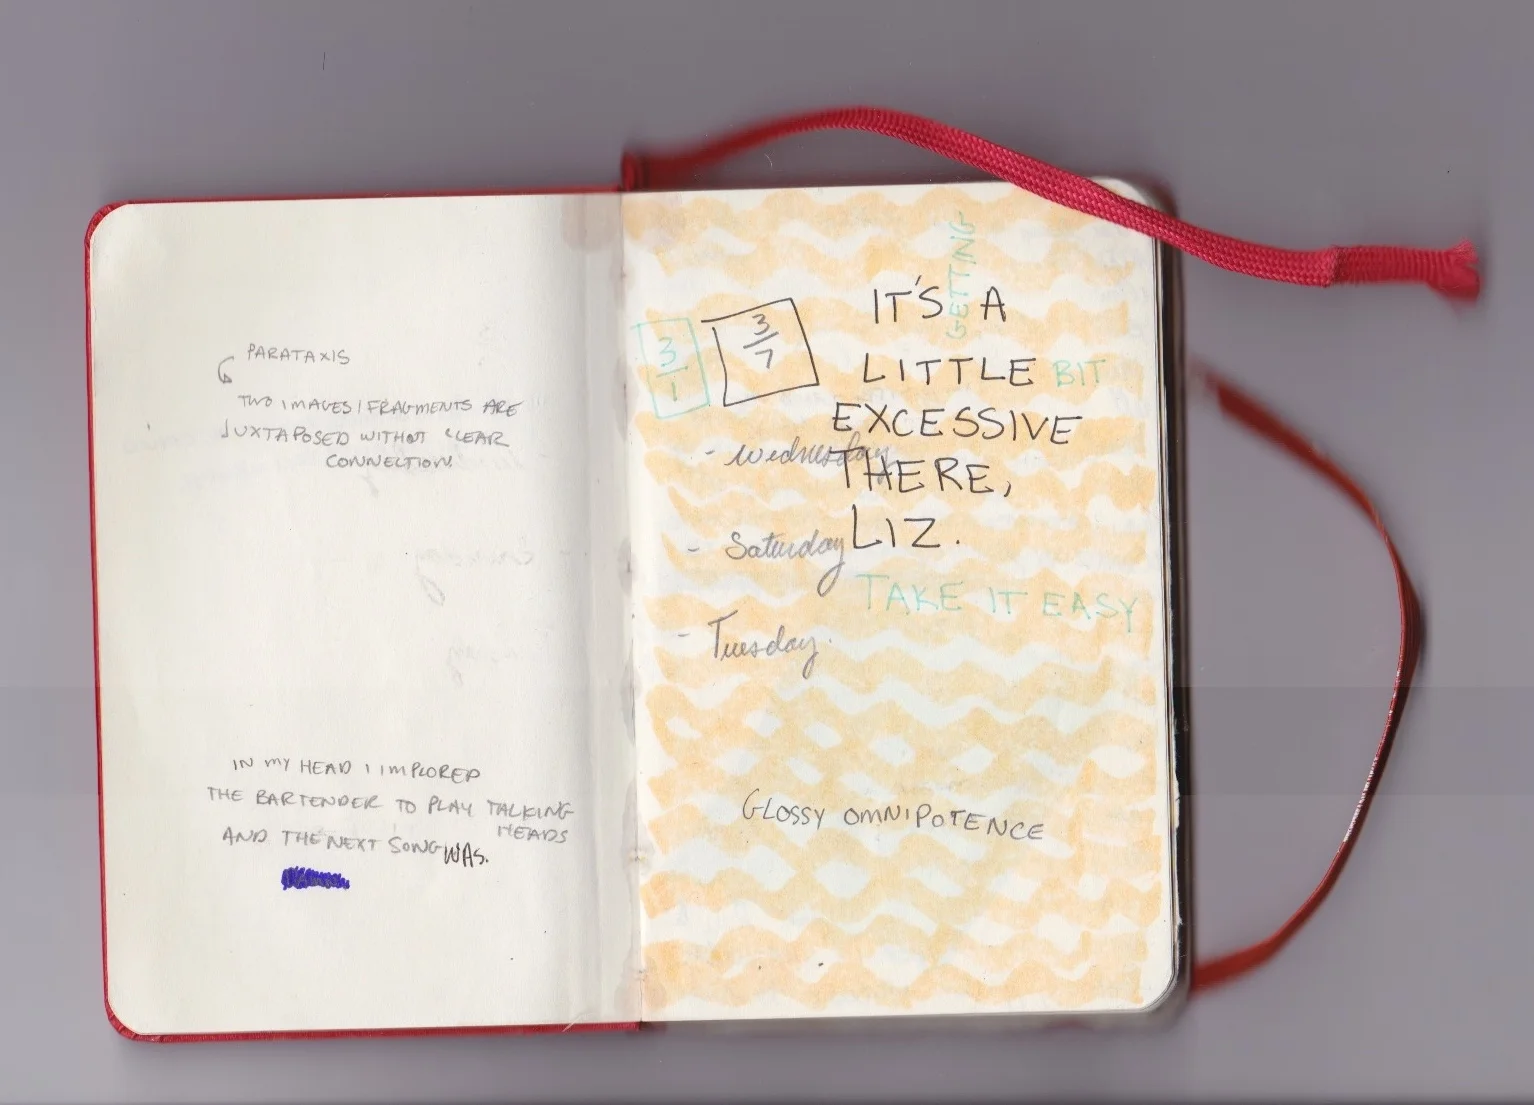 PARATAXIS
TWO IMAGES/FRAGMENTS ARE
JUXTAPOSED WITHOUT CLEAR
CONNECTION.
IN MY HEAD I IMPLORED
THE BARTENDER TO PLAY TALKING
HEADS
AND THE NEXT SONG WAS.
GETTING
3/1
3/7
IT'S A
LITTLE BIT
EXCESSIVE
THERE,
LIZ.
- Wednesday
- Saturday
TAKE IT EASY
- Tuesday.
GLOSSY OMNIPOTENCE